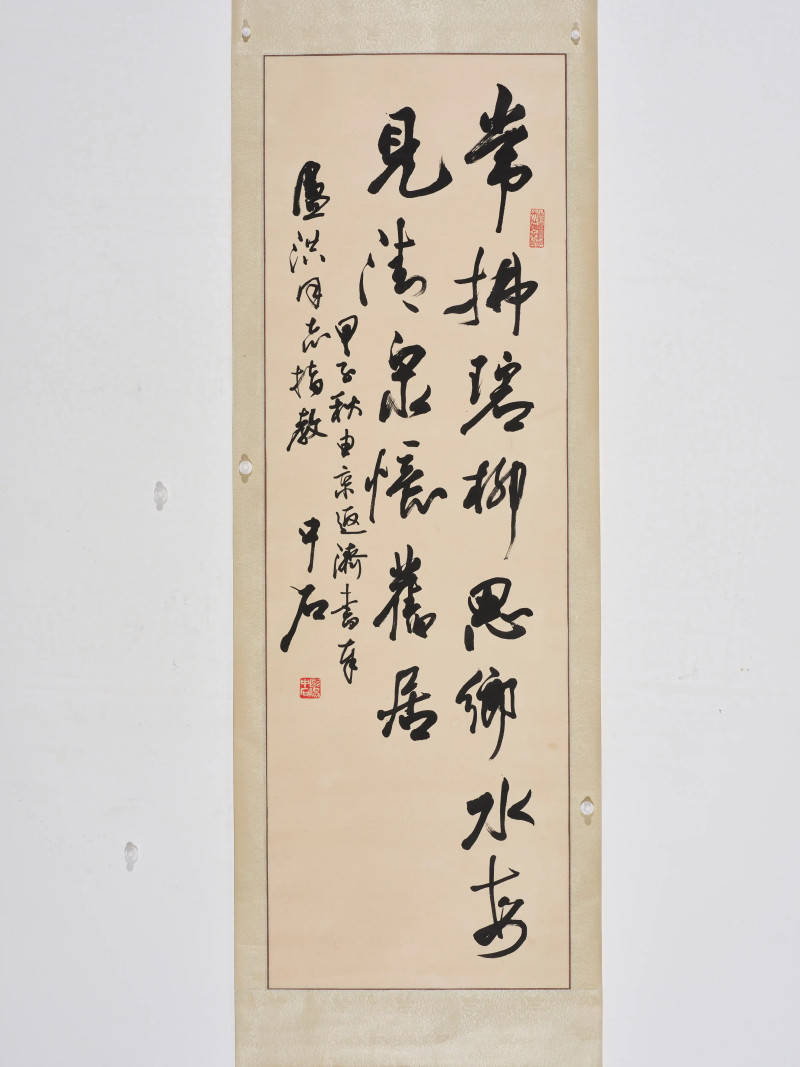 常拂碧柳思鄉水每
見清泉憶舊居
甲子秋由京返濟書奉
洪同志指教
中石